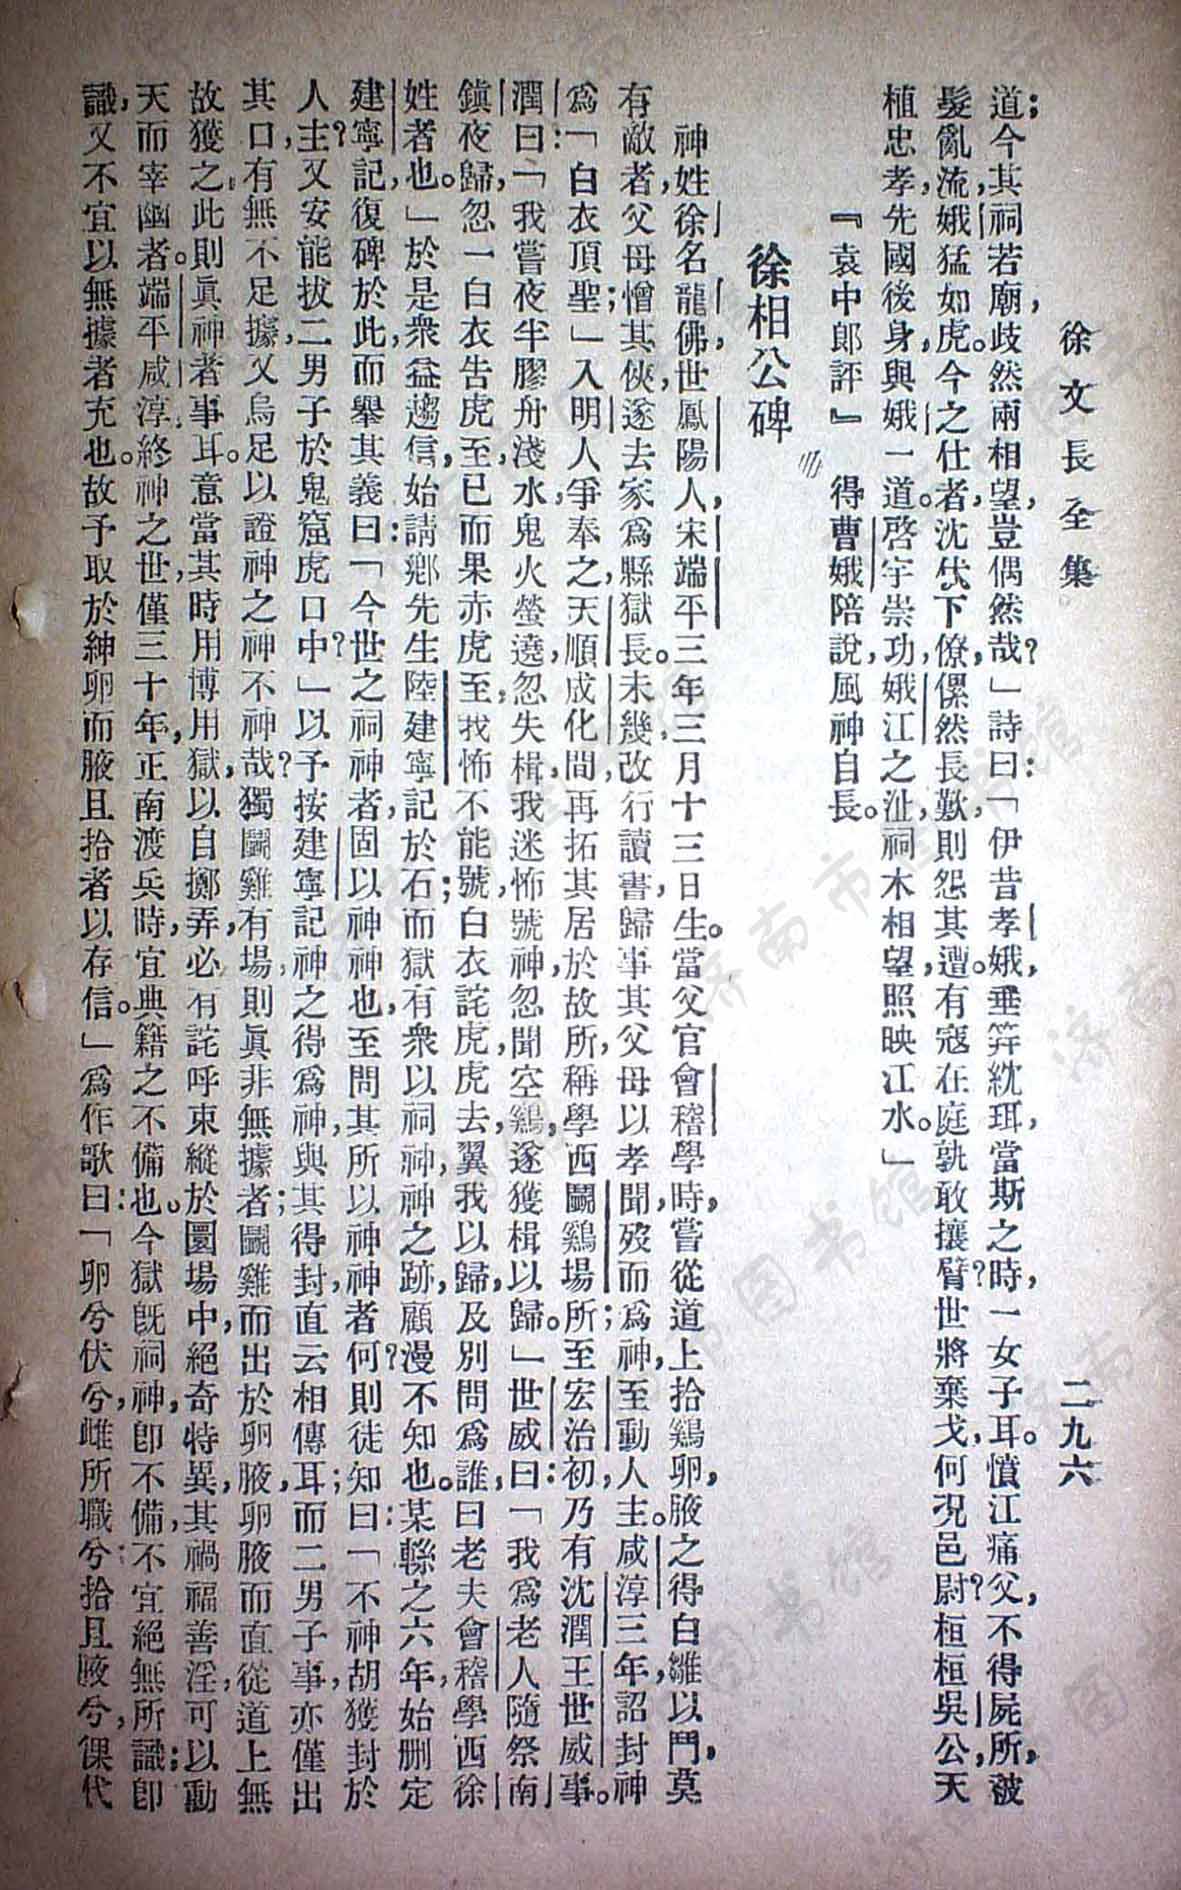 徐文長全集 二九六
道；今其祠若廟，歧然兩相望，豈偶然哉？」詩曰：「伊昔孝娥，垂笄紞珥，當斯之時，一女子耳。憤江痛父，不得屍所，被
髮亂流，娥猛如虎。今之仕者，沈伏下僚，傫然長歎，則怨其遭。有寇在庭，孰敢攘臂？世將棄戈，何況邑尉？桓桓吳公，天
植忠孝，先國後身，與娥一道。啓宇崇功，娥江之沚，祠木相望，照映江水。」
『袁中郎評』 得曹娥陪說，風神自長。
徐相公碑
神姓徐，名龍佛，世鳳陽人，宋端平三年三月十三日生。當父官會稽學時，嘗從道上拾鷄卵，腋之得白雛以鬥，莫
有敵者，父母憎其俠，遂去家爲縣獄長。未幾，改行讀書，歸事其父母以孝聞，歿而爲神，至動人主。咸淳三年，詔封神
爲「白衣頂聖」；入明，人爭奉之，天順成化間，再拓其居，於故所稱學西鬭鷄場所；至宏治初，乃有沈潤王世威事。
潤曰：「我嘗夜半膠舟淺水，鬼火螢遶，忽失楫，我迷怖號神，忽聞空鷄，遂獲楫以歸。」世威曰：「我爲老人，隨祭南
鎮，夜歸，忽一白衣告虎至，已而果赤虎至，我怖不能號，白衣詫虎，虎去，翼我以歸，及別問爲誰，曰老夫會稽學西徐
姓者也。」於是衆益趨信，始請鄉先生陸建寧記於石；而獄有衆以祠神，神之跡，顧漫不知也。某繇之六年，始刪定
建寧記，復碑於此，而舉其義曰：「今世之祠神者，固以神神也，至問其所以神神者何？則徒知曰：「不神胡獲封於
人主？又安能拔二男子於鬼窟虎口中？」以予按建寧記，神之得爲神，與其得封，直云相傳耳；而二男子事，亦僅出
其口，有無不足據，又烏足以證神之神不神哉？獨鬭雞有場，則眞非無據者；鬭雞而出於卵腋，卵腋而直從道上無
故獲之，此則眞神者事耳。意當其時，用博用獄，以自擲弄，必有詫呼束縱於圜場中，絕奇特異，其禍福善淫，可以動
天而宰幽者。端平咸淳，終神之世，僅三十年，正南渡兵時，宜典籍之不備也。今獄旣祠神，卽不備，不宜絕無所識；卽
識，又不宜以無據者充也。故予取於紳卵而腋且拾者以存信。」爲作歌曰：「卵兮伏兮，雌所職兮；拾且腋兮，徍代